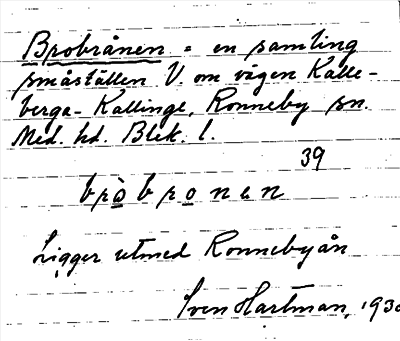 Brobrånen = en samling
småställen V. om vägen Kalle-
berga - Kallinge, Ronneby sn.
Med. hd. Blek. l.
39
brò bronen
Ligger utmed Ronnebyån
Sven Hartman, 193